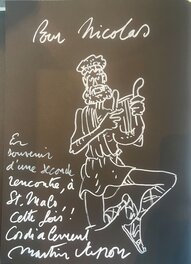 Pour Nicolas
En
souvenir
d'une seconde
rencontre, à
St. Malo
Cette fois !
Cordialement
martin